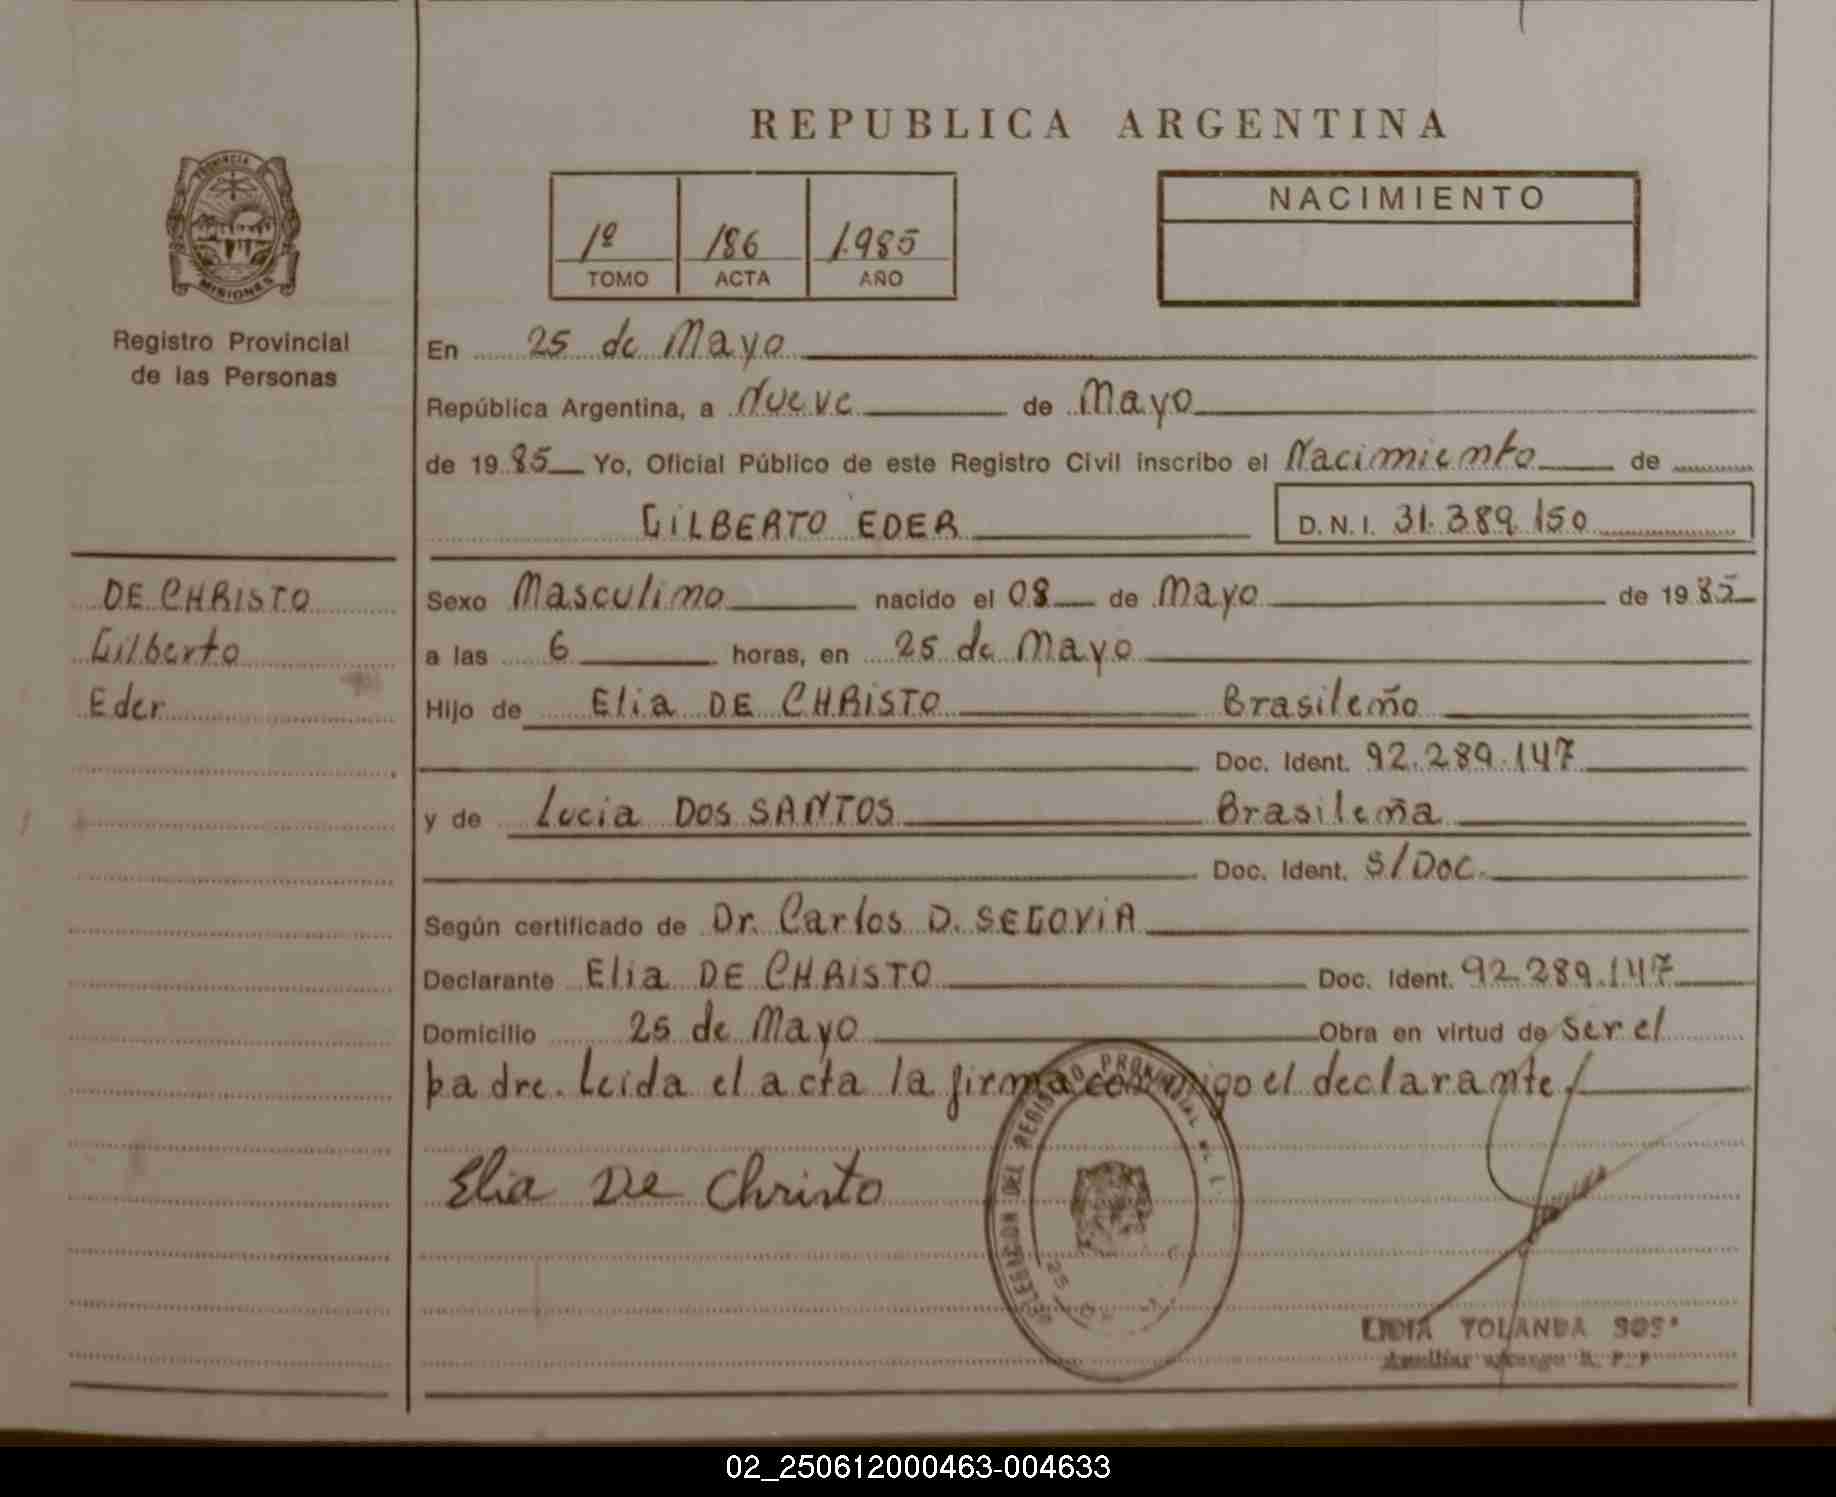 REPUBLICA ARGENTINA
PROVINCIA
MISIONES
Registro Provincial
de las Personas
1º 186 1.985
TOMO ACTA AÑO
NACIMIENTO
En 25 de Mayo
República Argentina, a Nueve de Mayo
de 19 85 Yo, Oficial Público de este Registro Civil inscribo el Nacimiento de
GILBERTO EDER D.N.I. 31.389.150
DE CHRISTO
Gilberto
Eder
Sexo Masculino nacido el 08 de Mayo de 19 85
a las 6 horas, en 25 de Mayo
Hijo de Elia DE CHRISTO Brasileño
Doc. Ident. 92.289.147
y de Lucia DOS SANTOS Brasileña
Doc. Ident. S/Doc.
Según certificado de Dr. Carlos D. SEGOVIA
Declarante Elia DE CHRISTO Doc. Ident. 92.289.147
Domicilio 25 de Mayo Obra en virtud de ser el
padre. Leida el acta la firma conmigo el declarante.
Elia De Christo
DELEGACION DEL REGISTRO PROVINCIAL
25
LIDIA YOLANDA
Auxiliar
02_250612000463-004633